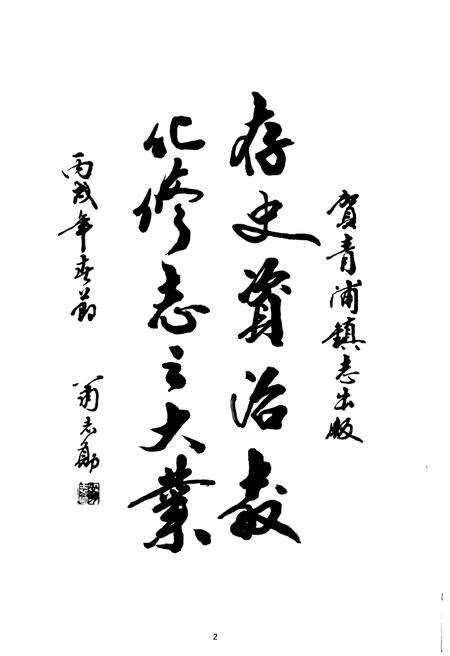 賀青浦鎮志出版
存史資治教
化修志之大業
丙戌年春節
蕭志勛
2